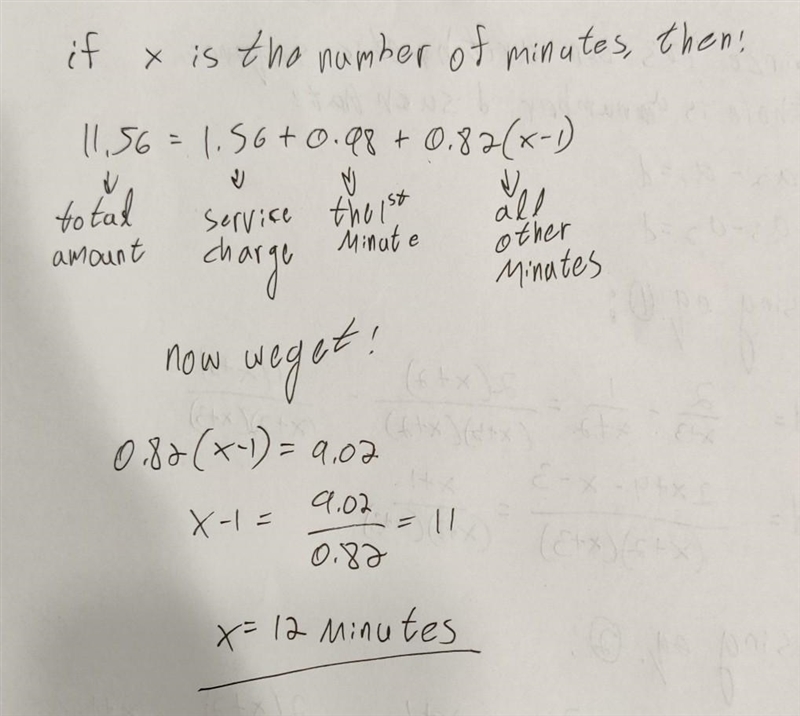 if x is the number of minutes, then:
11.56 = 1.56 + 0.98 + 0.82(x-1)
total amount
service charge
the 1st Minute
all other Minutes
now we get!
0.82(x-1) = 9.02
x-1 = 9.02/0.82 = 11
x = 12 Minutes